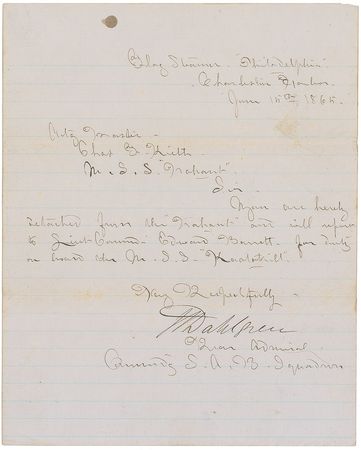 Flag Steamer "Philadelphia"
Charleston Harbor
June 15th 1865.
Actg Master
Chas E. Keith
U. S. S. "Nahant"
Sir
You are hereby
detached from the "Nahant" and will report
to Lieut Comm. Edward Barrett for duty
on board the U. S. S. "Kaatskill".
Very Respectfully
J A Dahlgren
Rear Admiral
Commdg S. A. B. Squadron